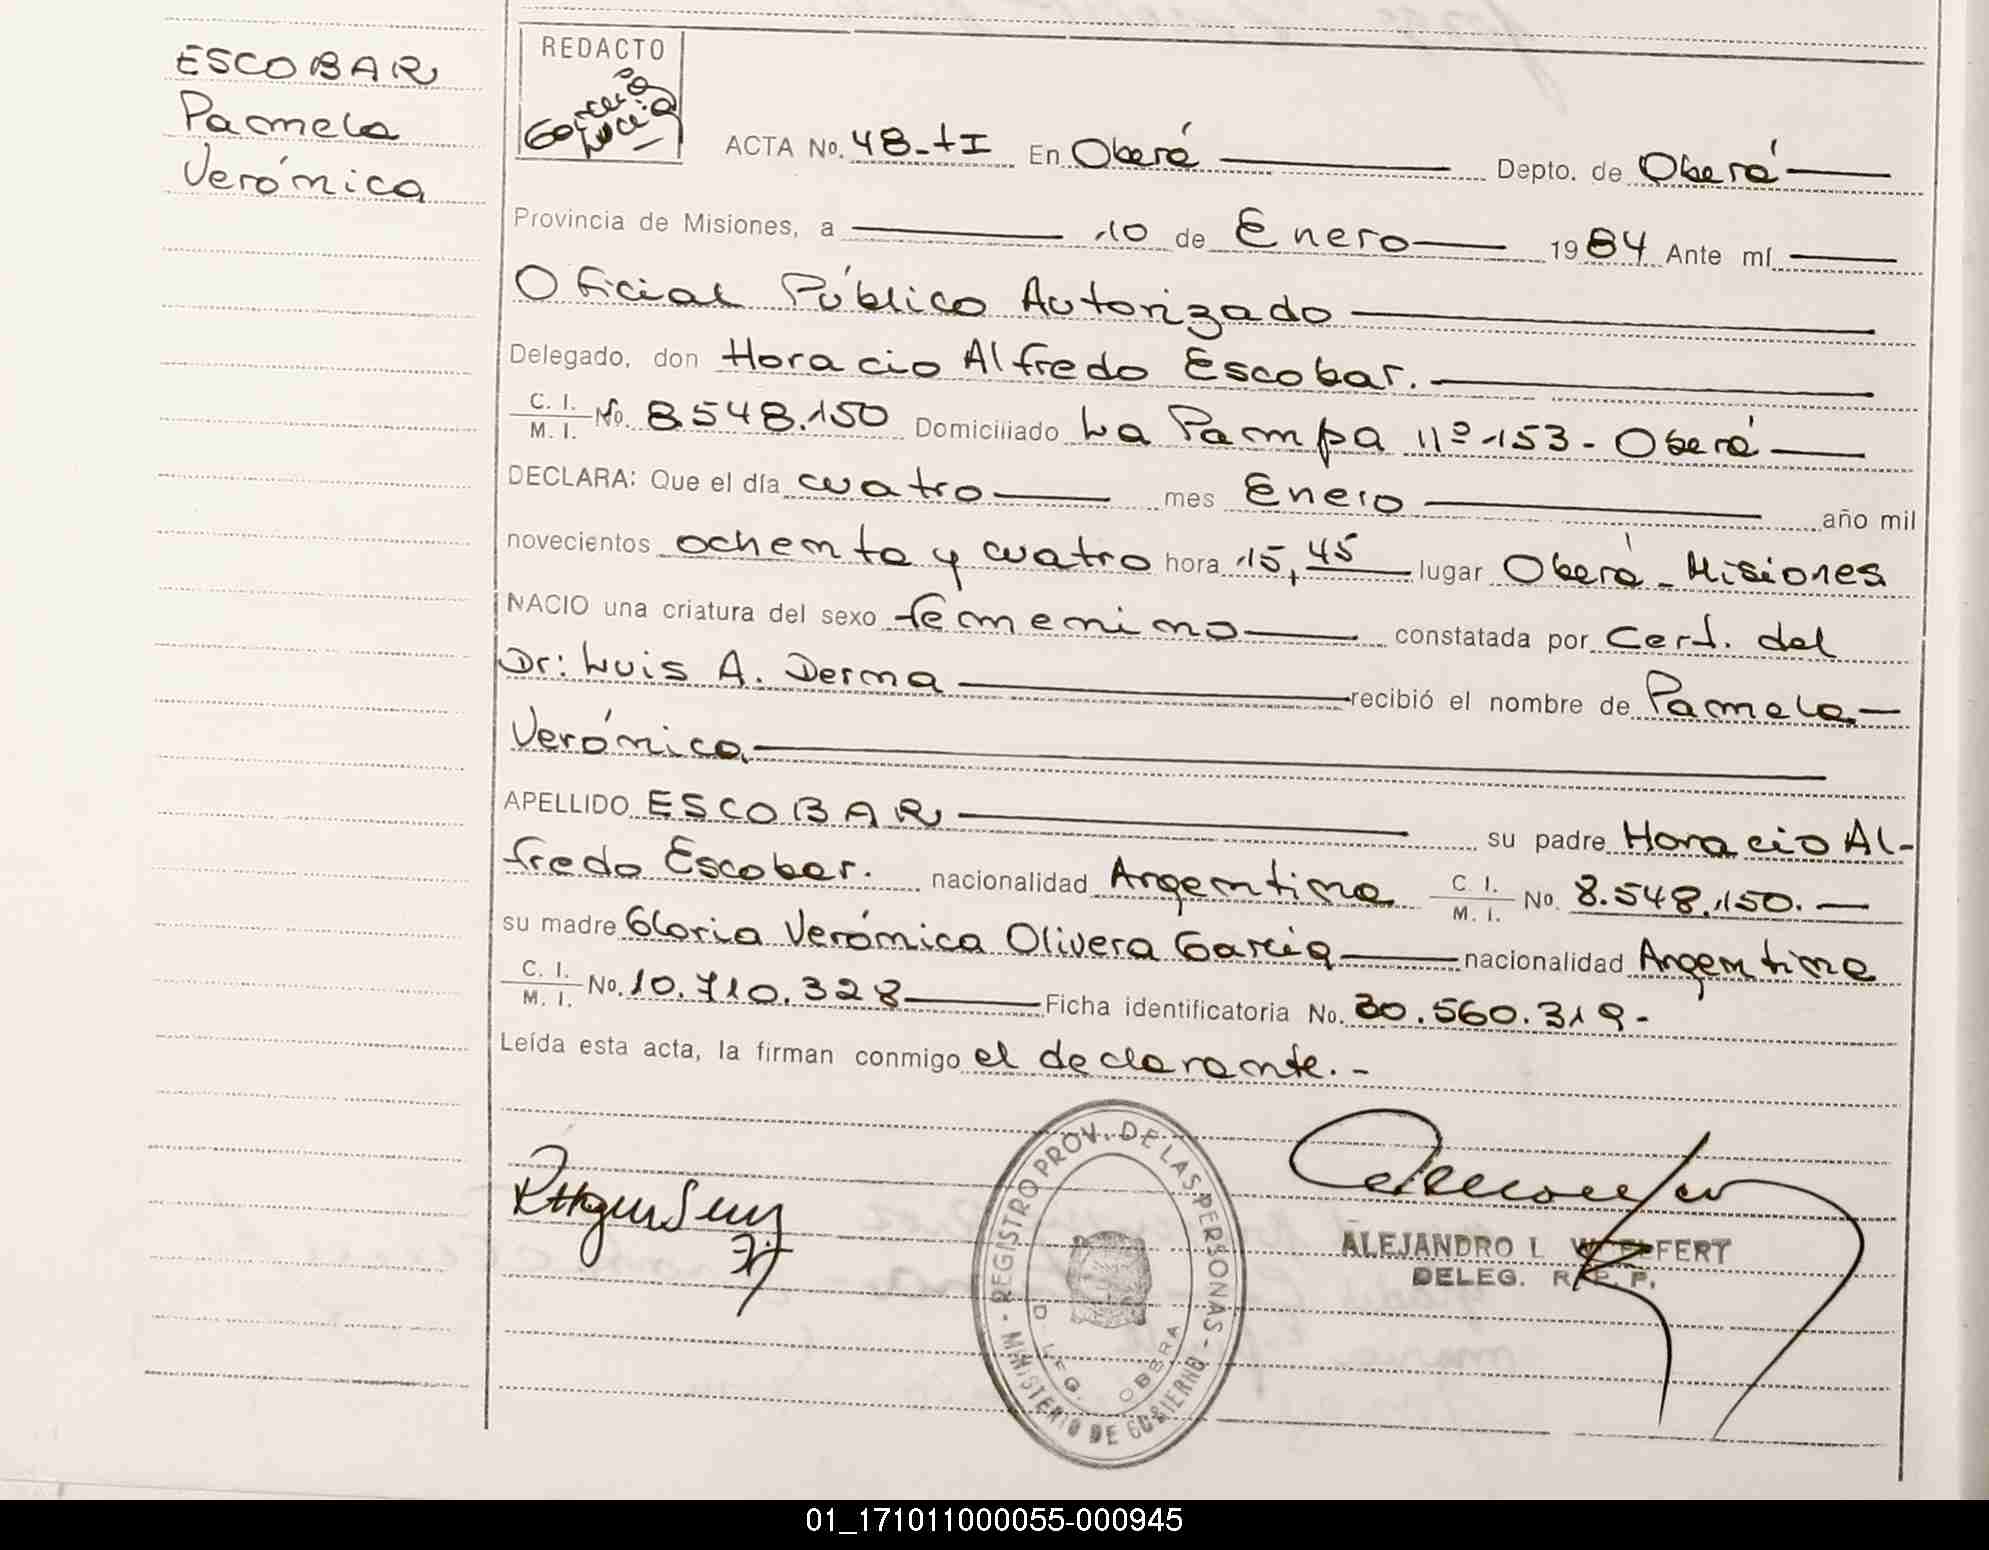 ESCOBAR
Pamela
Verónica
REDACTO
ACTA No. 48-tI En Oberá Depto. de Oberá
Provincia de Misiones, a 10 de Enero 1984 Ante mí
Oficial Público Autorizado
Delegado, don Horacio Alfredo Escobar.
C. I. / M. I. No. 8.548.150 Domiciliado La Pampa nº 153 - Oberá
DECLARA: Que el día cuatro mes Enero año mil
novecientos ochenta y cuatro hora 15,45 lugar Oberá - Misiones
NACIO una criatura del sexo femenino constatada por Cert. del
Dr: Luis A. Derna recibió el nombre de Pamela
Verónica
APELLIDO ESCOBAR su padre Horacio Al-
fredo Escobar. nacionalidad Argentina C. I. / M. I. No. 8.548.150.
su madre Gloria Verónica Olivera García nacionalidad Argentina
C. I. / M. I. No. 10.710.328 Ficha identificatoria No. 30.560.319-
Leída esta acta, la firman conmigo el declarante.-
REGISTRO PROV. DE LAS PERSONAS - MINISTERIO DE GOBIERNO
OBERA
ALEJANDRO L. WELFERT
DELEG. R. P. P.
01_171011000055-000945